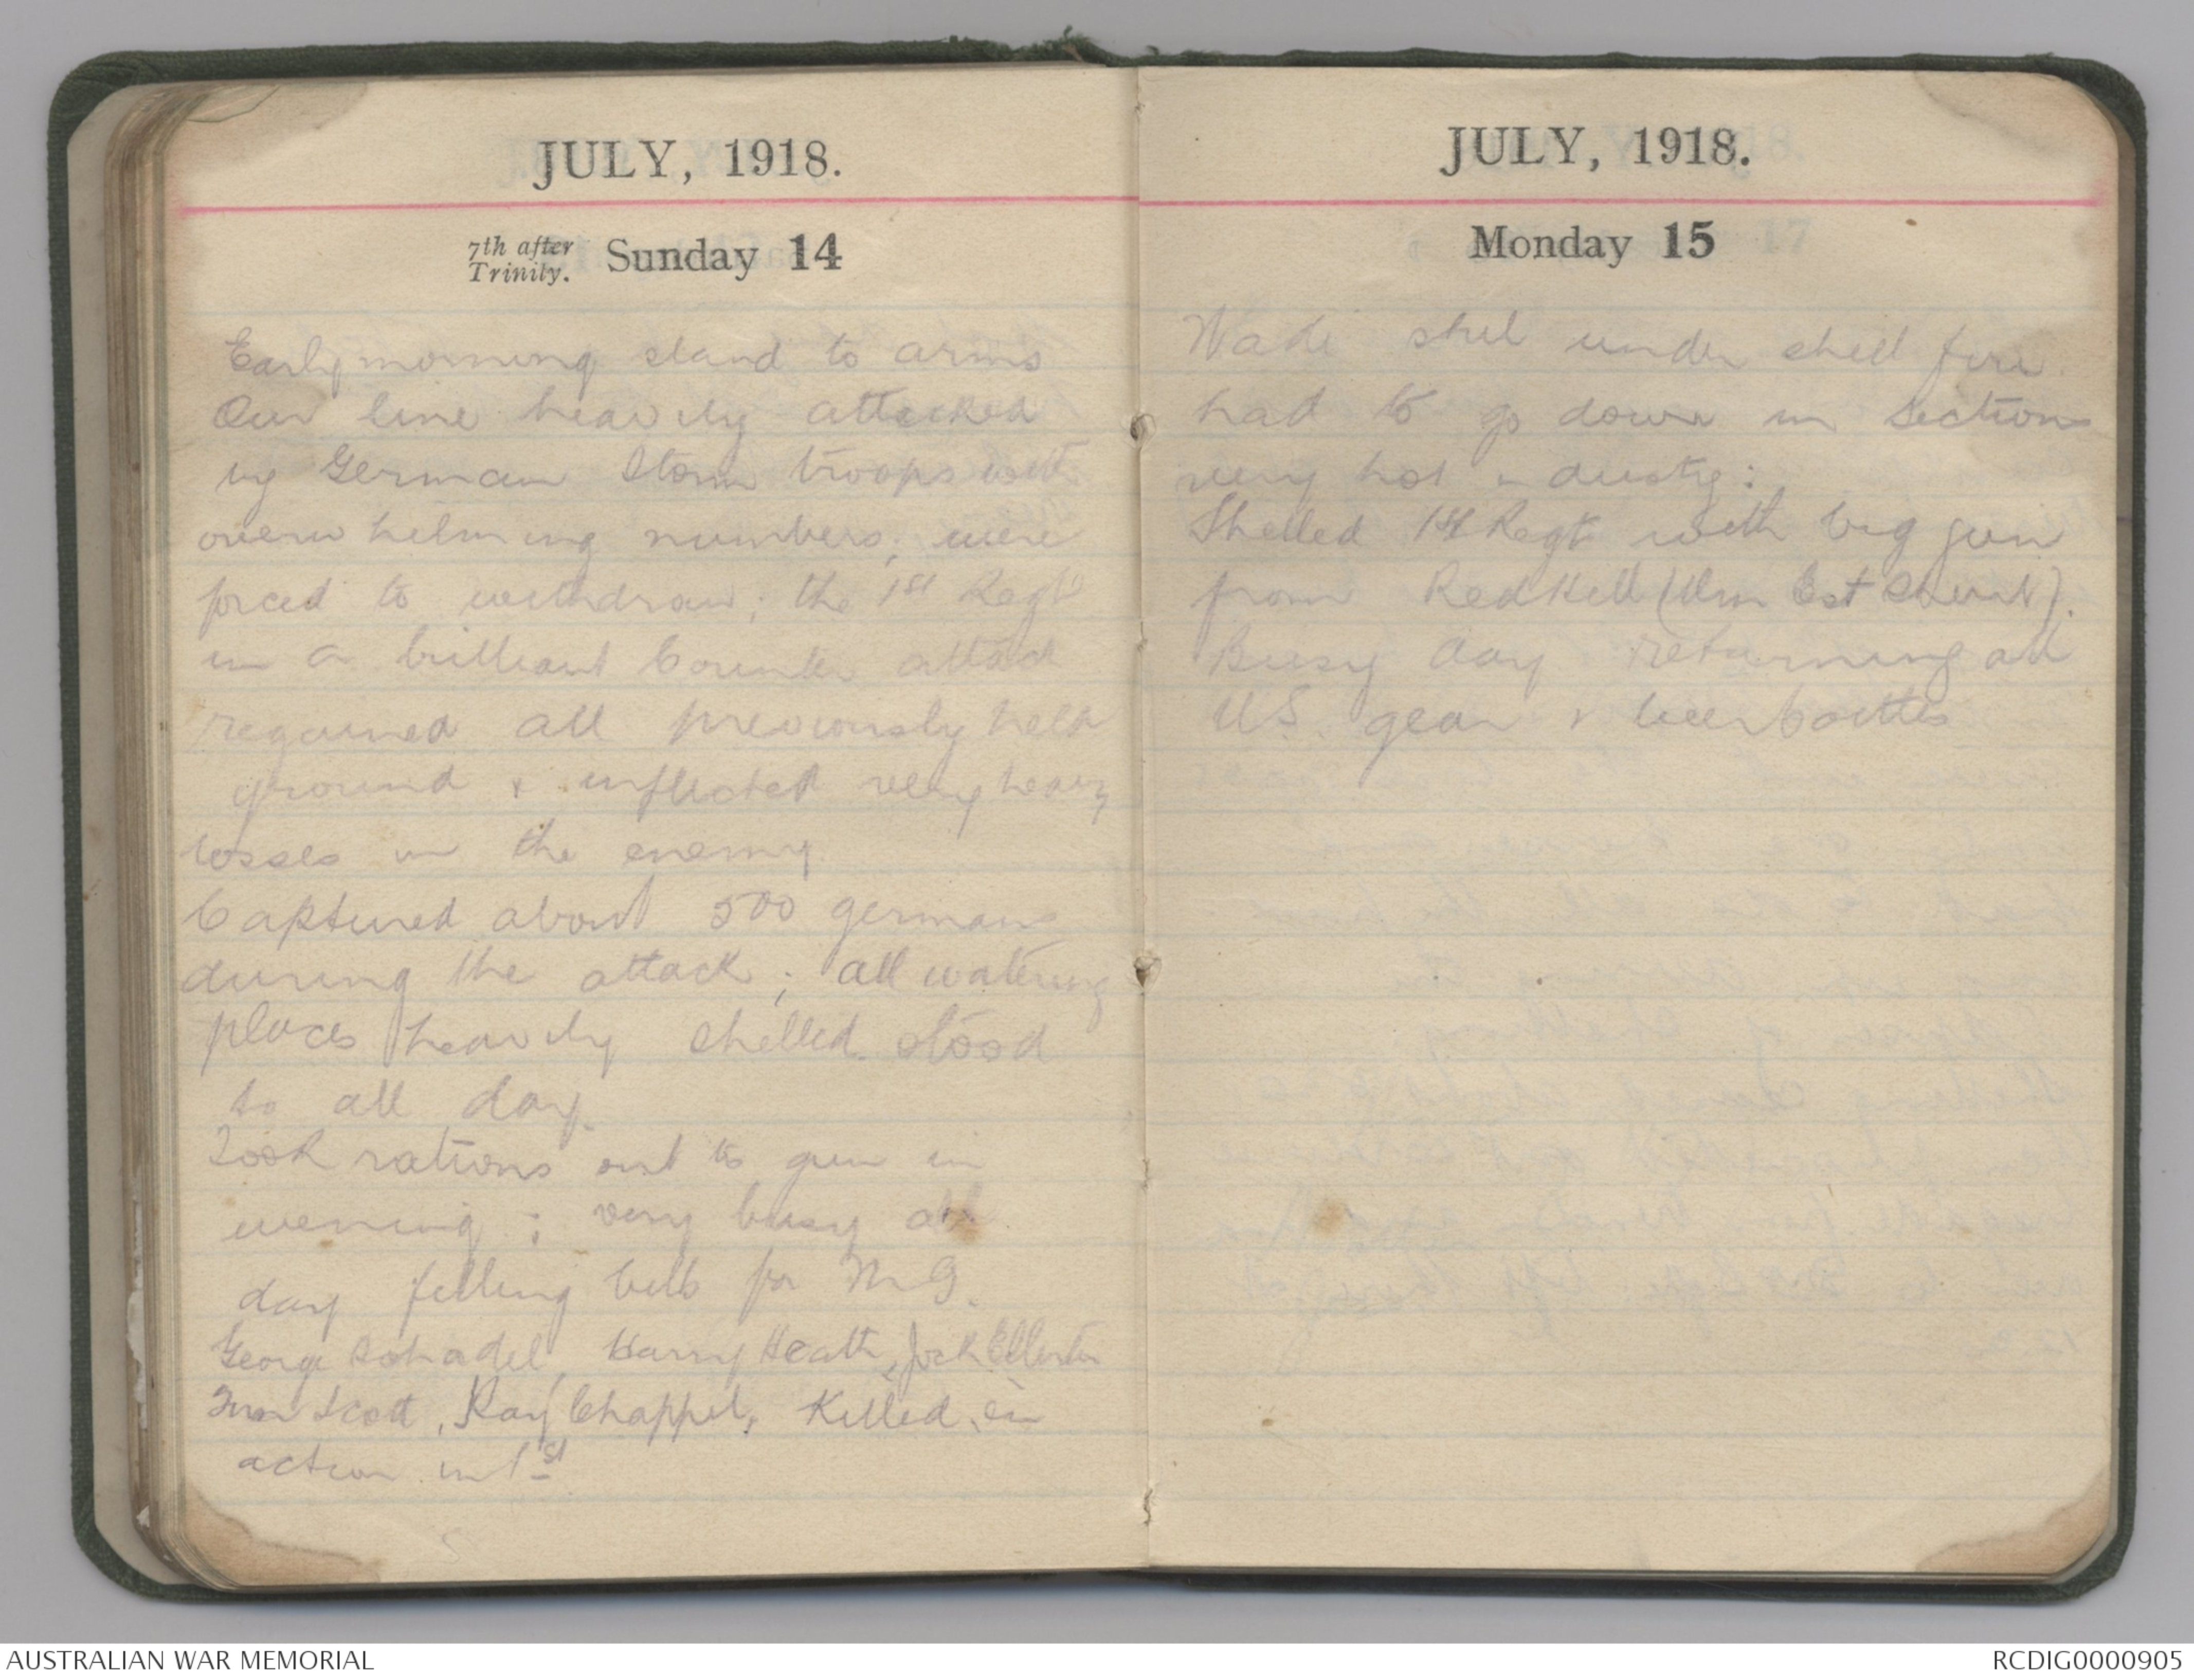 JULY, 1918.
7th after Trinity. Sunday 14
Early morning stand to arms
Our line heavily attacked
by German Storm troops with
overwhelming numbers; were
forced to withdraw; the 1st Regt
in a brilliant Counter attack
regained all previously held
ground & inflicted very heavy
losses on the enemy
Captured about 500 germans
during the attack; all watering
places heavily shelled. stood
to all day.
Took rations out to gun in
evening; very busy all
day filling belts for M.G.
George Schadel, Harry Heath, Jock Ellerton
Scott, Ray Chappel, Killed in
action in 1st
JULY, 1918.
Monday 15
Wadi still under shell fire.
had to go down in sections
very hot & dusty:
Shelled 1st Regt with big gun
from Red Hill (Um Est Shert).
Busy day returning all
US. gear & beer bottles
AUSTRALIAN WAR MEMORIAL
RCDIG0000905